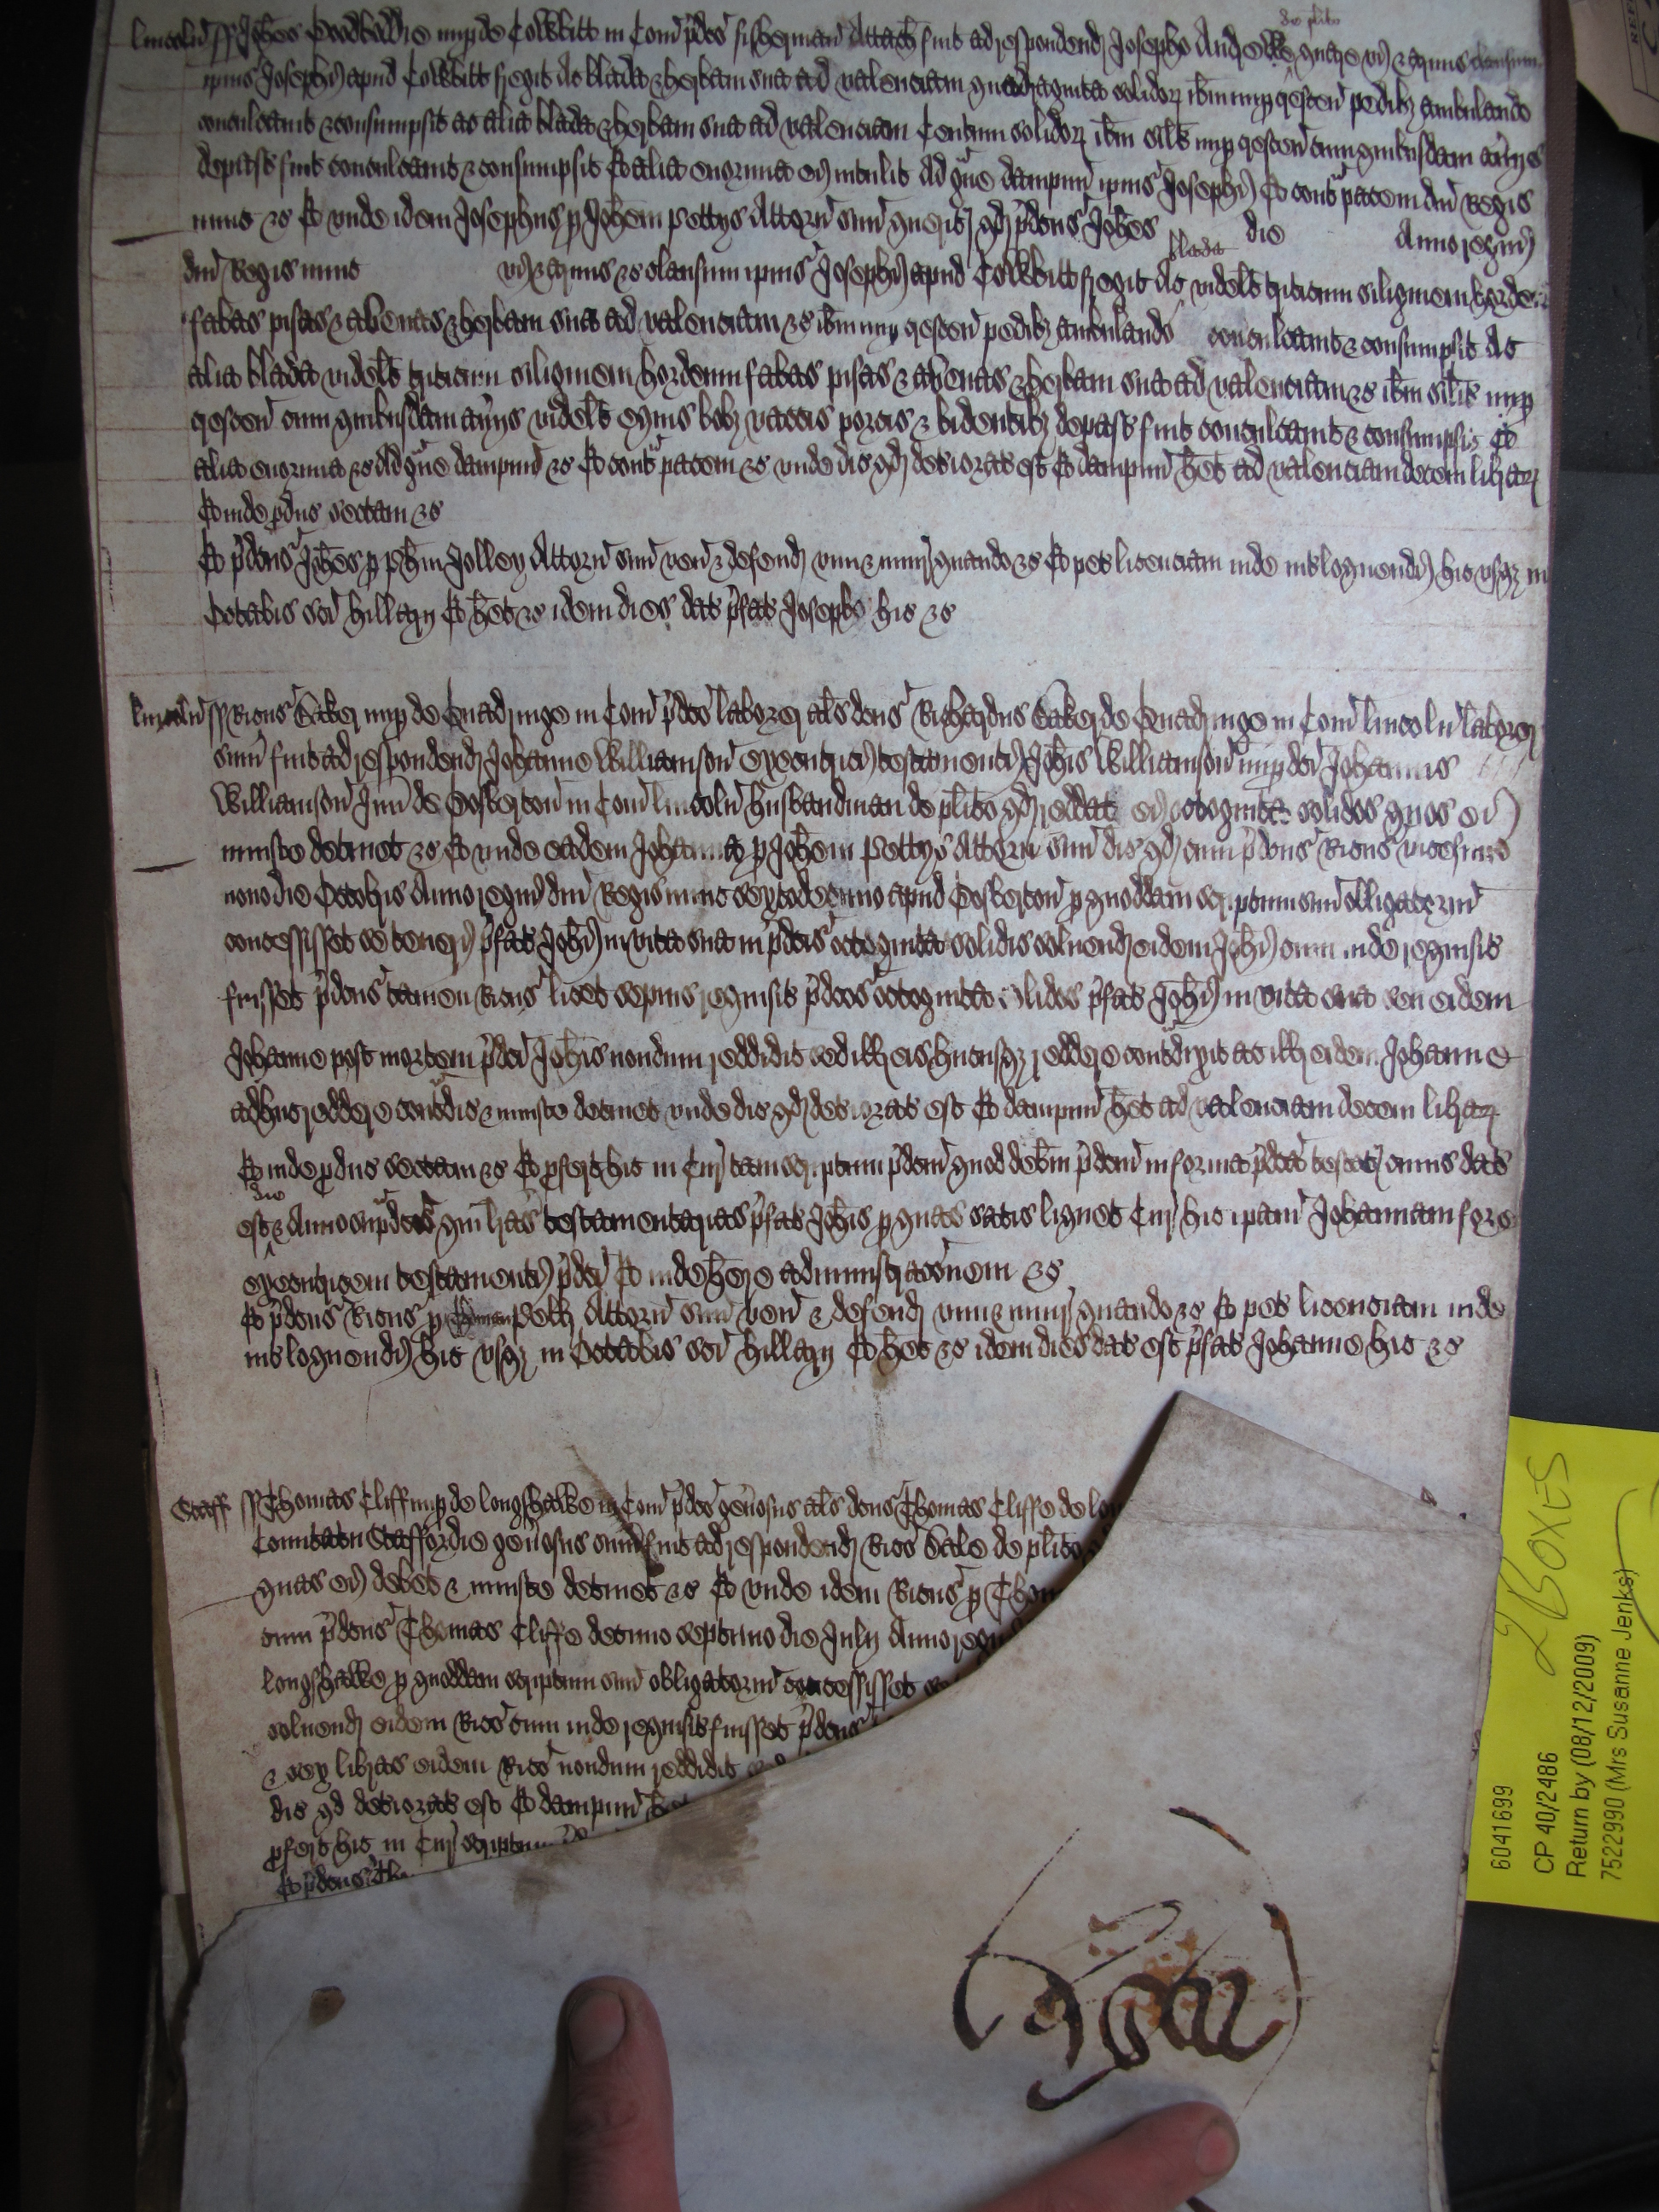 Lincoln ss Joħes nup de Colkbitt in Com p̄dco Attach fuit ad respondend Josepho de plito quare vi & armis clausum
ipius Josephi apud Colkbitt fregit ac blada & herbam sua ad valenciam quadraginta solidoꝝ ibm nup crescen pedibȝ ambulando
conculcavit & consumpsit ac alia blada & herbam sua ad valenciam Centum solidoꝝ ibm silit nup crescen cum quibusdam aūijs
depast fuit conculcavit & consumpsit Et alia enormia ei intulit Ad gʳue dampnu ipius Josephi Et contʳ pacem dni Regis
nunc &c Et unde idem Josephus p Joħem Pettys Attorn suu queritʳ qd p̄dcus Joħes die Anno regni
dni Regis nunc vi & armis &c clausum ipius Josephi apud Colkbitt fregit Ac blada videlt triticum siliginem hordeu
fabas pisas & avenas & herbam sua ad valenciam &c ibm nup crescen pedibȝ ambulando conculcavit & consumpsit Ac
alia blada videlt triticum siliginem hordeum fabas pisas & avenas & herbam sua ad valenciam &c ibm silit nup
crescen cum quibusdam aūijs videlt equis bobȝ vaccis porcis & bidentibȝ depast fuit conculcavit & consumpsit Et
alia enormia &c Ad gʳue dampnu &c Et contʳ pacem &c unde dic qd deteriorat est Et dampnu ħet ad valenciam decem libraꝝ
Et inde pduc sectam &c
Et p̄dcus Joħes p Pħm Jolley Attorn suu ven & defend vim & iniur quando &c Et pet licenciam inde inloquendi hic usqȝ in
Octabis sci Hillarij Et ħet &c idem dies dat p̄fat Josepho hic &c
Lincoln ss Ricus Baker nup de Quadringe in Com p̄dco laborer als dcus Richardus Baker de Quadringe in Com Lincoln laborer
sum fuit ad respondend Johanne Williamson executrici testamenti Joħis Williamson nup dci Johannis
Williamson Jun de Gosberton in Com Lincoln husbandman de plito qd reddat ei octoginta solidos quos ei
iniuste detinet &c Et unde eadem Johanna p Joħem Pettys Attorn suu dic qd cum p̄dcus Ricus vicesimo
nono die Octobris Anno regni dni Regis nunc sextodecimo apud Gosberton p quoddam scriptum suu obligatoriu
concessisset se teneri p̄fat Joħi in vita sua in p̄dcis octoginta solidis solvend eidem Joħi cum inde requisit
fuisset p̄dcus tamen Ricus licet sepius requisit p̄dcos octoginta solidos p̄fat Joħi in vita sua seu eidem
Johanne post mortem p̄dci Joħis nondum reddidit sed ill eis hucusqȝ reddere contʳdixit ac ill eidem Johanne
adhuc reddere contʳdic & iniuste detinet unde dic qd deteriorat est Et dampnu ħet ad valenciam decem libraꝝ
Et inde pduc sectam &c Et pfert hic in Cur tam scriptum p̄dcm quod debm p̄dcm in forma p̄dca testatʳ cuius dat
est die & Anno sup̄dcis qm lras testamentarias p̄fat Joħis p quas satis liquet Cur hic ipam Johannam fore
executricem testamenti p̄dci Et inde ħere administracoem &c
Et p̄dcus Ricus p Pell Attorn suu ven & defend vim & iniur quando &c Et pet licenciam inde
inloquendi hic usqȝ in Octabis sci Hillarij Et ħet &c idem dies dat est p̄fat Johanne hic &c
Staff ss Thomas Cliff nup de Longshawe in Com p̄dco geñosus als dcus Thomas Cliffe de Lon
Comitatu Staffordie geñosus sum fuit ad respondend Rico Bale de plito
quas ei debet & iniuste detinet &c Et unde idem Ricus p Thom
cum p̄dcus Thomas Cliffe decimo septimo die Julij Anno regn
Longshawe p quoddam scriptum suu obligatoriu concessisset se
solvend eidem Rico cum inde requisit fuisset p̄dcus
& sex libras eidem Rico nondum reddidit sed
dic qd deteriorat est Et dampnu ħet
pfert hic in Cur scriptum
Et p̄dcus Tho
2 BOXES
6041699
CP 40/2486
Return by (08/12/2009)
7522990 (Mrs Susanne Jenks)